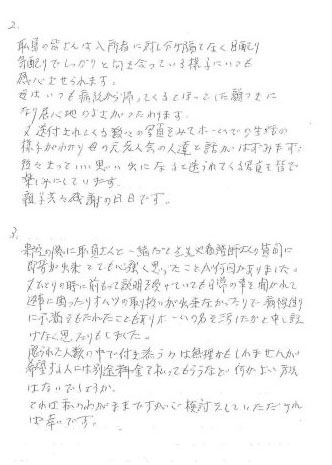 2.
職員の皆さんは入所者に対し分け隔てなく目配り
気配りでしっかりと向き合っている様子にいつも
感心させられます。
母はいつも病院から帰ってくるとほっとした顔つきに
なり居心地のよさがつたわります。
又送付されてくる数々の写真をみてホームでの生活の
様子がわかり母の元友人会の人達と話がはずみます。
いい思い出になると送られてくる写真を皆で
楽しみにしています。
親子共々感謝の日々です。
3.
の際に職員さんと一緒だと先生や看護師さんの質問に
即答が出来とても心強く思ったことが何回かありました。
ひとりの時に前もって説明を受けていても日常の事を聞かれて
返事に困ったりオムツの取り扱いが出来なかったりで病院側
に不満をもたれたこともありホームの名を汚したかと申し訳
けなく思ったりもしました。
限られた人数の中で付き添うのは無理かもしれませんが
希望する人には別途料金で払ってもらうなど何かよい方法
はないでしょうか。
これは私のわがままですがご検討をしていただければ
幸いです。